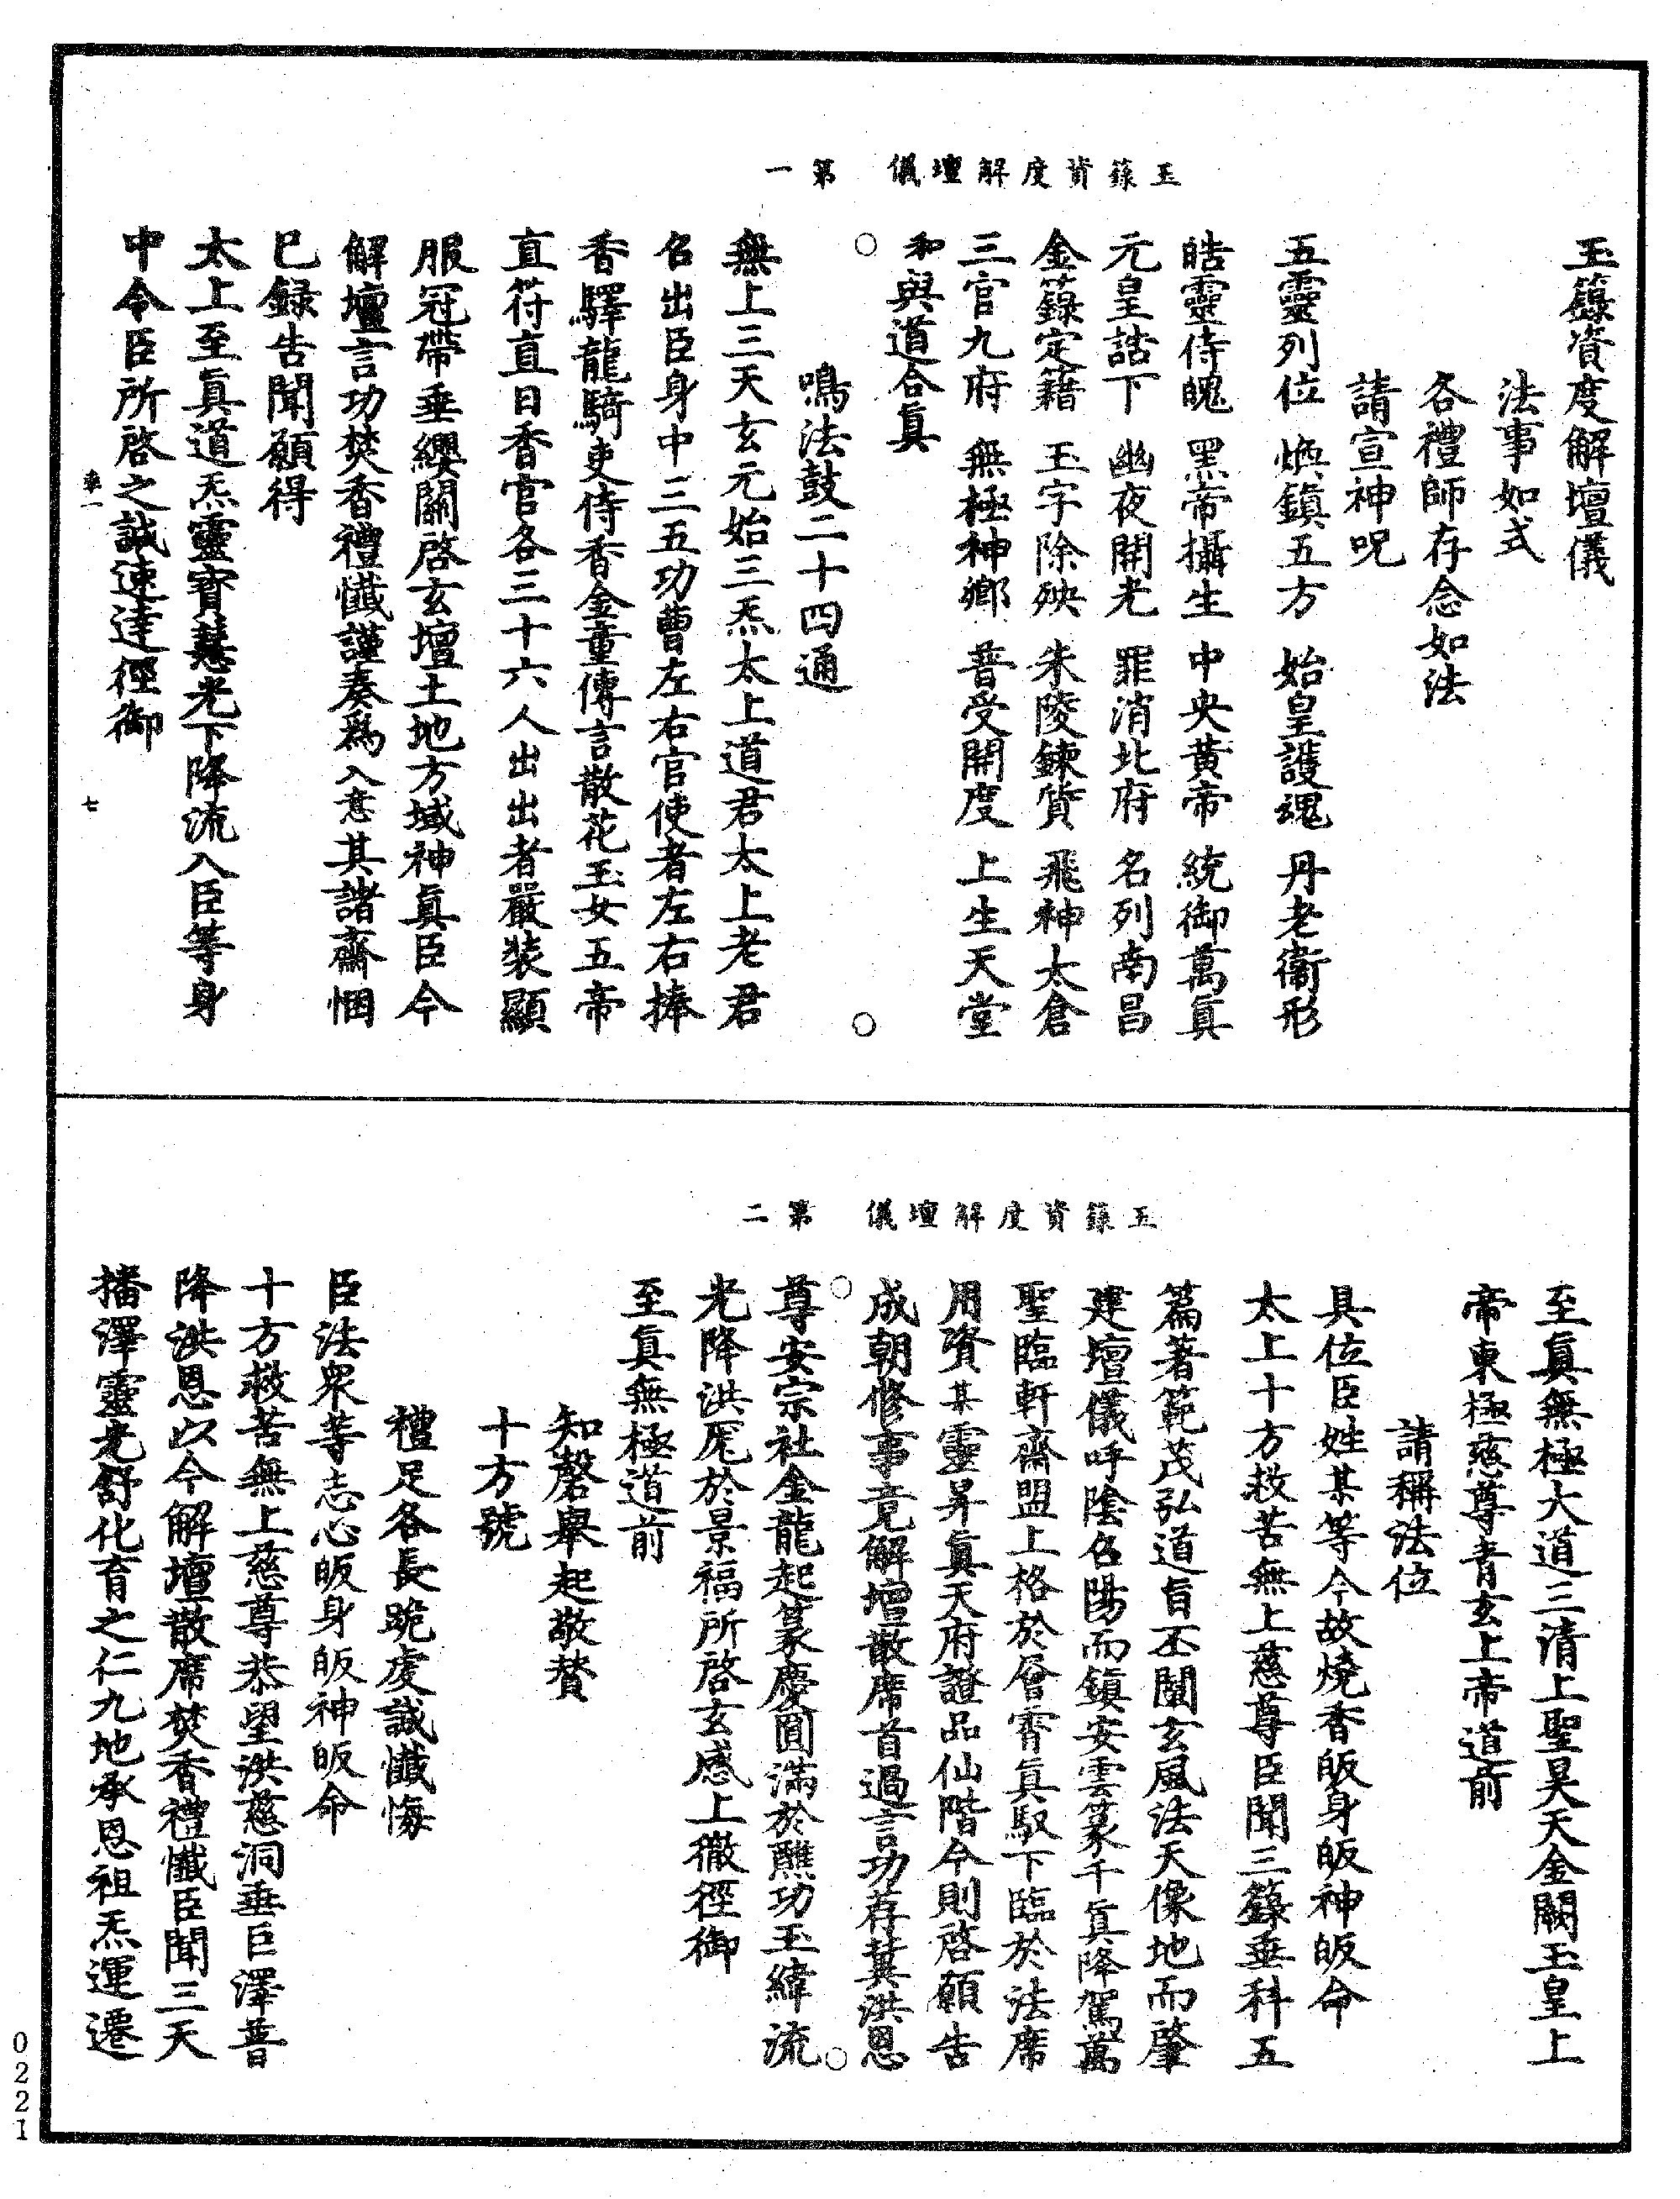 玉籙資度解壇儀　第一
玉籙資度解壇儀
法事如式
各禮師存念如法
請宣神呪
五靈列位　煥鎮五方　始皇護魂　丹老衞形
皓靈侍魄　黑帝攝生　中央黃帝　統御萬眞
元皇誥下　幽夜開光　罪消北府　名列南昌
金籙定籍　玉字除殃　朱陵鍊質　飛神太倉
三官九府　無極神鄉　普受開度　上生天堂
和與道合眞
鳴法鼓二十四通
無上三天玄元始三炁太上道君太上老君
召出臣身中三五功曹左右官使者左右捧
香驛龍騎吏侍香金童傳言散花玉女五帝
直符直日香官各三十六人出出者嚴裝顯
服冠帶垂纓關啓玄壇土地方域神眞臣今
解壇言功焚香禮懺謹奏爲入意其諸齋悃
已録告聞願得
太上至眞道炁靈寶慧光下降流入臣等身
中令臣所啓之誠速達徑御
率一　七
玉籙資度解壇儀　第二
至眞無極大道三清上聖昊天金闕玉皇上
帝東極慈尊青玄上帝道前
請稱法位
具位臣姓某等今故燒香皈身皈神皈命
太上十方救苦無上慈尊臣聞三籙垂科五
篇著範茂弘道旨丕闡玄風法天像地而肇
建壇儀呼陰召陽而鎮安雲篆千眞降駕萬
聖臨軒齋盟上格於層霄眞馭下臨於法席
用資某靈昇眞天府證品仙階今則啓願告
成朝修事竟解壇散席首過言功荐冀洪恩
尊安宗社金龍起篆慶圓滿於醮功玉緯流
光降洪厖於景福所啓玄感上徹徑御
至眞無極道前
知磬舉起敬贊
十方號
禮足各長跪虔誠懺悔
臣法衆等志心皈身皈神皈命
十方救苦無上慈尊恭望洪慈洞垂巨澤普
降洪恩以今解壇散席焚香禮懺臣聞三天
播澤靈光舒化育之仁九地承恩祖炁運遷
0221